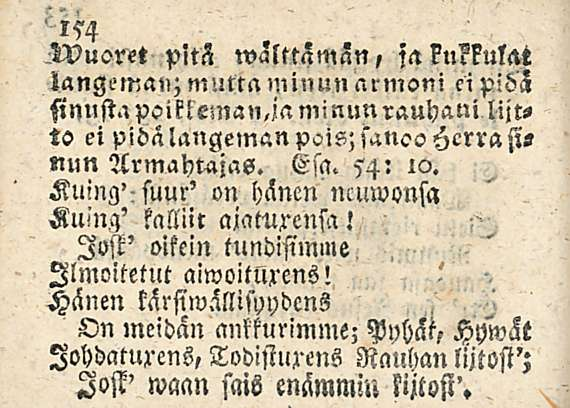 154
Wuoret pitä wälttämän, ja kukkulat
langeman; mutta minun armoni ei pidä
sinusta poikkeman, ja minun rauhani lijt-
to ei pidä langeman pois; sanoo Herra si-
nun Armahtajas. Esa. 54: 10.
Kuing' suur' on hänen neuwonsa
Kuing' kalliit ajatuxensa!
Josk' oikein tundisimme
Ilmoitetut aiwoituxens!
Hänen kärsiwällisyydens
On meidän ankkurimme; Pyhät, Hywät
Johdatuxens, Todistuxens Rauhan lijtost';
Josk' waan sais enämmin kijtost'.